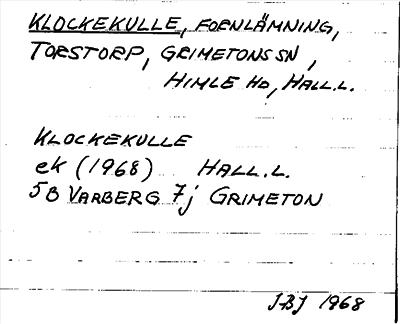 KLOCKEKULLE, FORNLÄMNING,
TORSTORP, GRIMETONS SN,
HIMLE HD, HALL.L.
KLOCKEKULLE
ek (1968) HALL.L.
5B VARBERG 7j GRIMETON
JBJ 1968